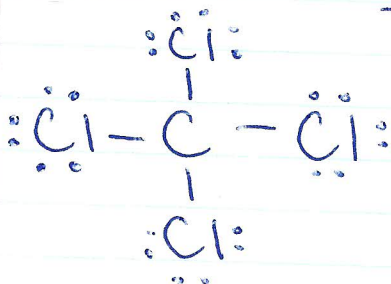 Cl
Cl - C - Cl
Cl